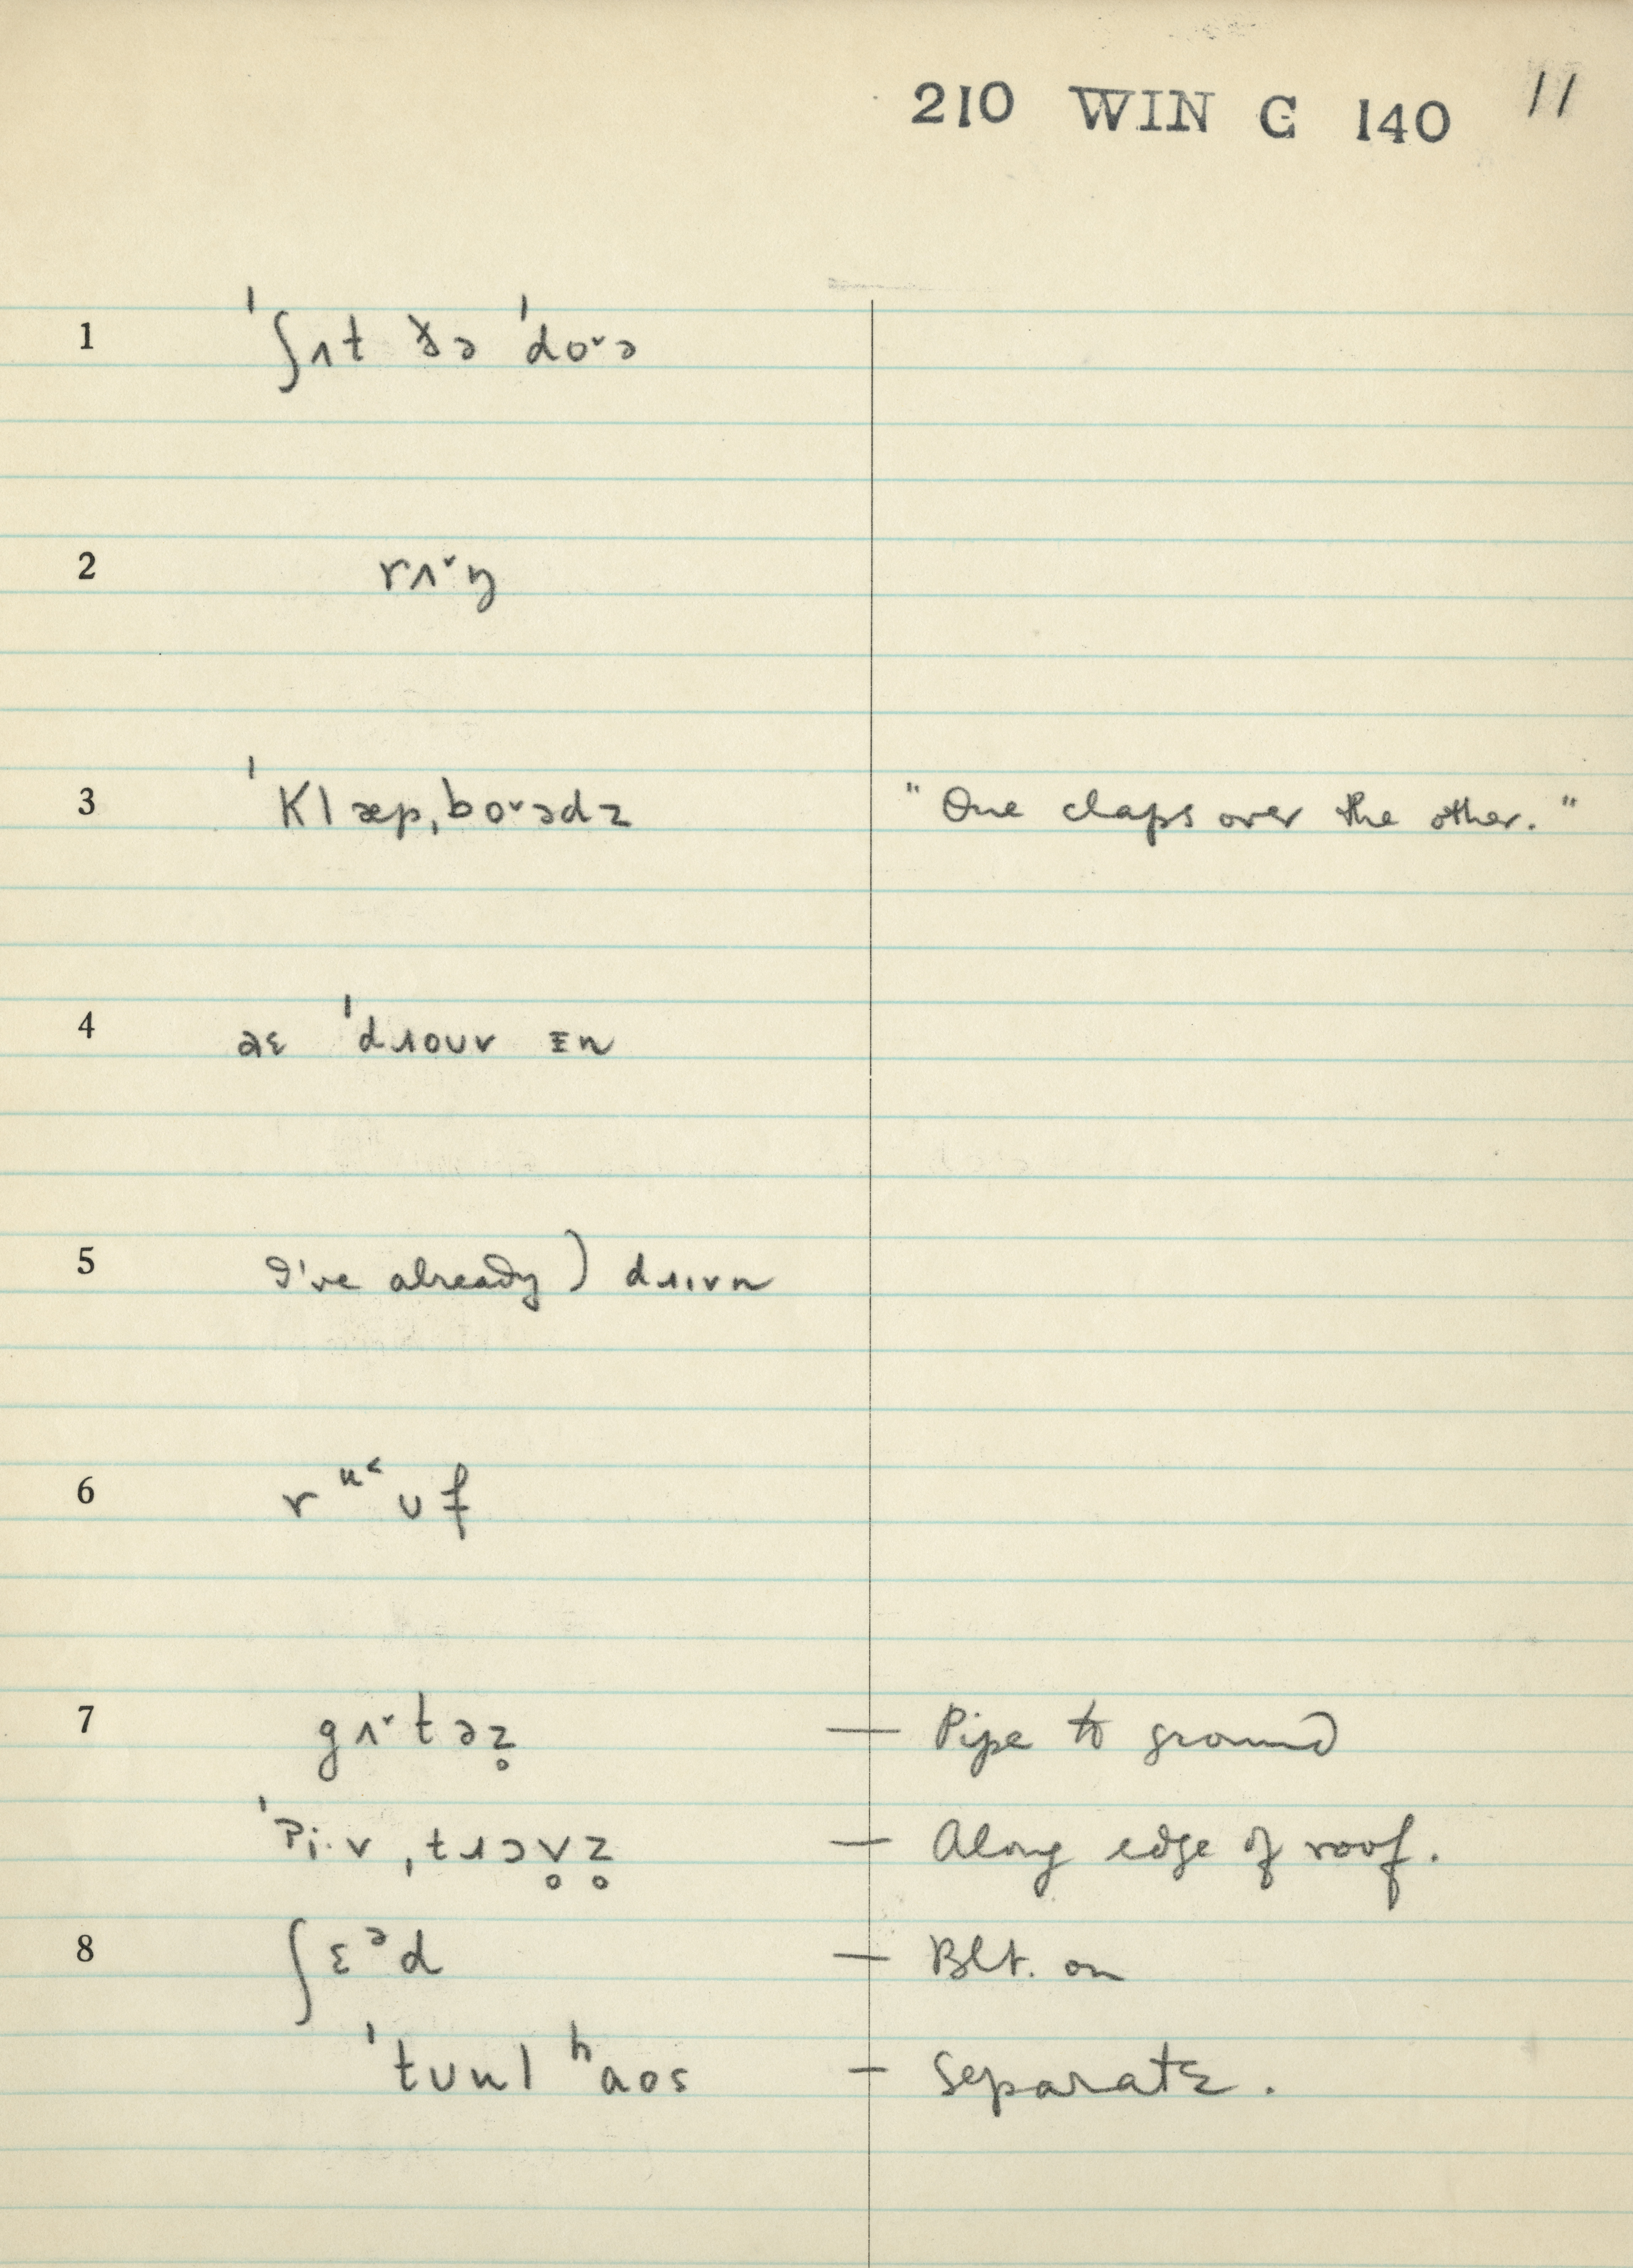 210 WIN C 140 11
1 ˈʃʌt ðə ˈdo˅ə
2 rʌ˅ŋ
3 ˈKlæpˌbo˅ədz "One claps over the other."
4 aɛ ˈdɹouv ɪn
5 I've already) dɹɪvn
6 rᵘ˂ᴜf
7 gʌ˅təz̥ — Pipe to ground
ˈPi·vˌtɹɔv̥z̥ — Along edge of roof.
8 ʃɛᵊd — Blt. on
ˈtᴜul ʰaos — Separate.